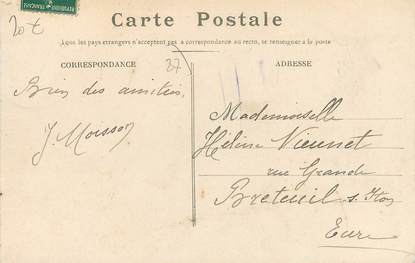 Carte Postale
Tous les pays étrangers n'acceptent pas la correspondance au recto, se renseigner à la poste
CORRESPONDANCE
ADRESSE
27
20 €
Bien des amitiés,
J. Moisson
Mademoiselle
Hélène Vieunet
rue Grande
Breteuil s. Iton
Eure